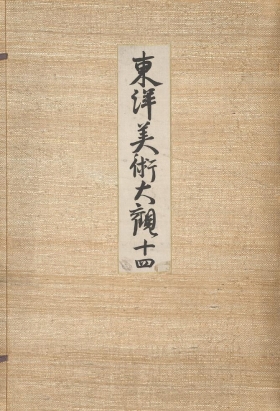 東洋美術大觀十四